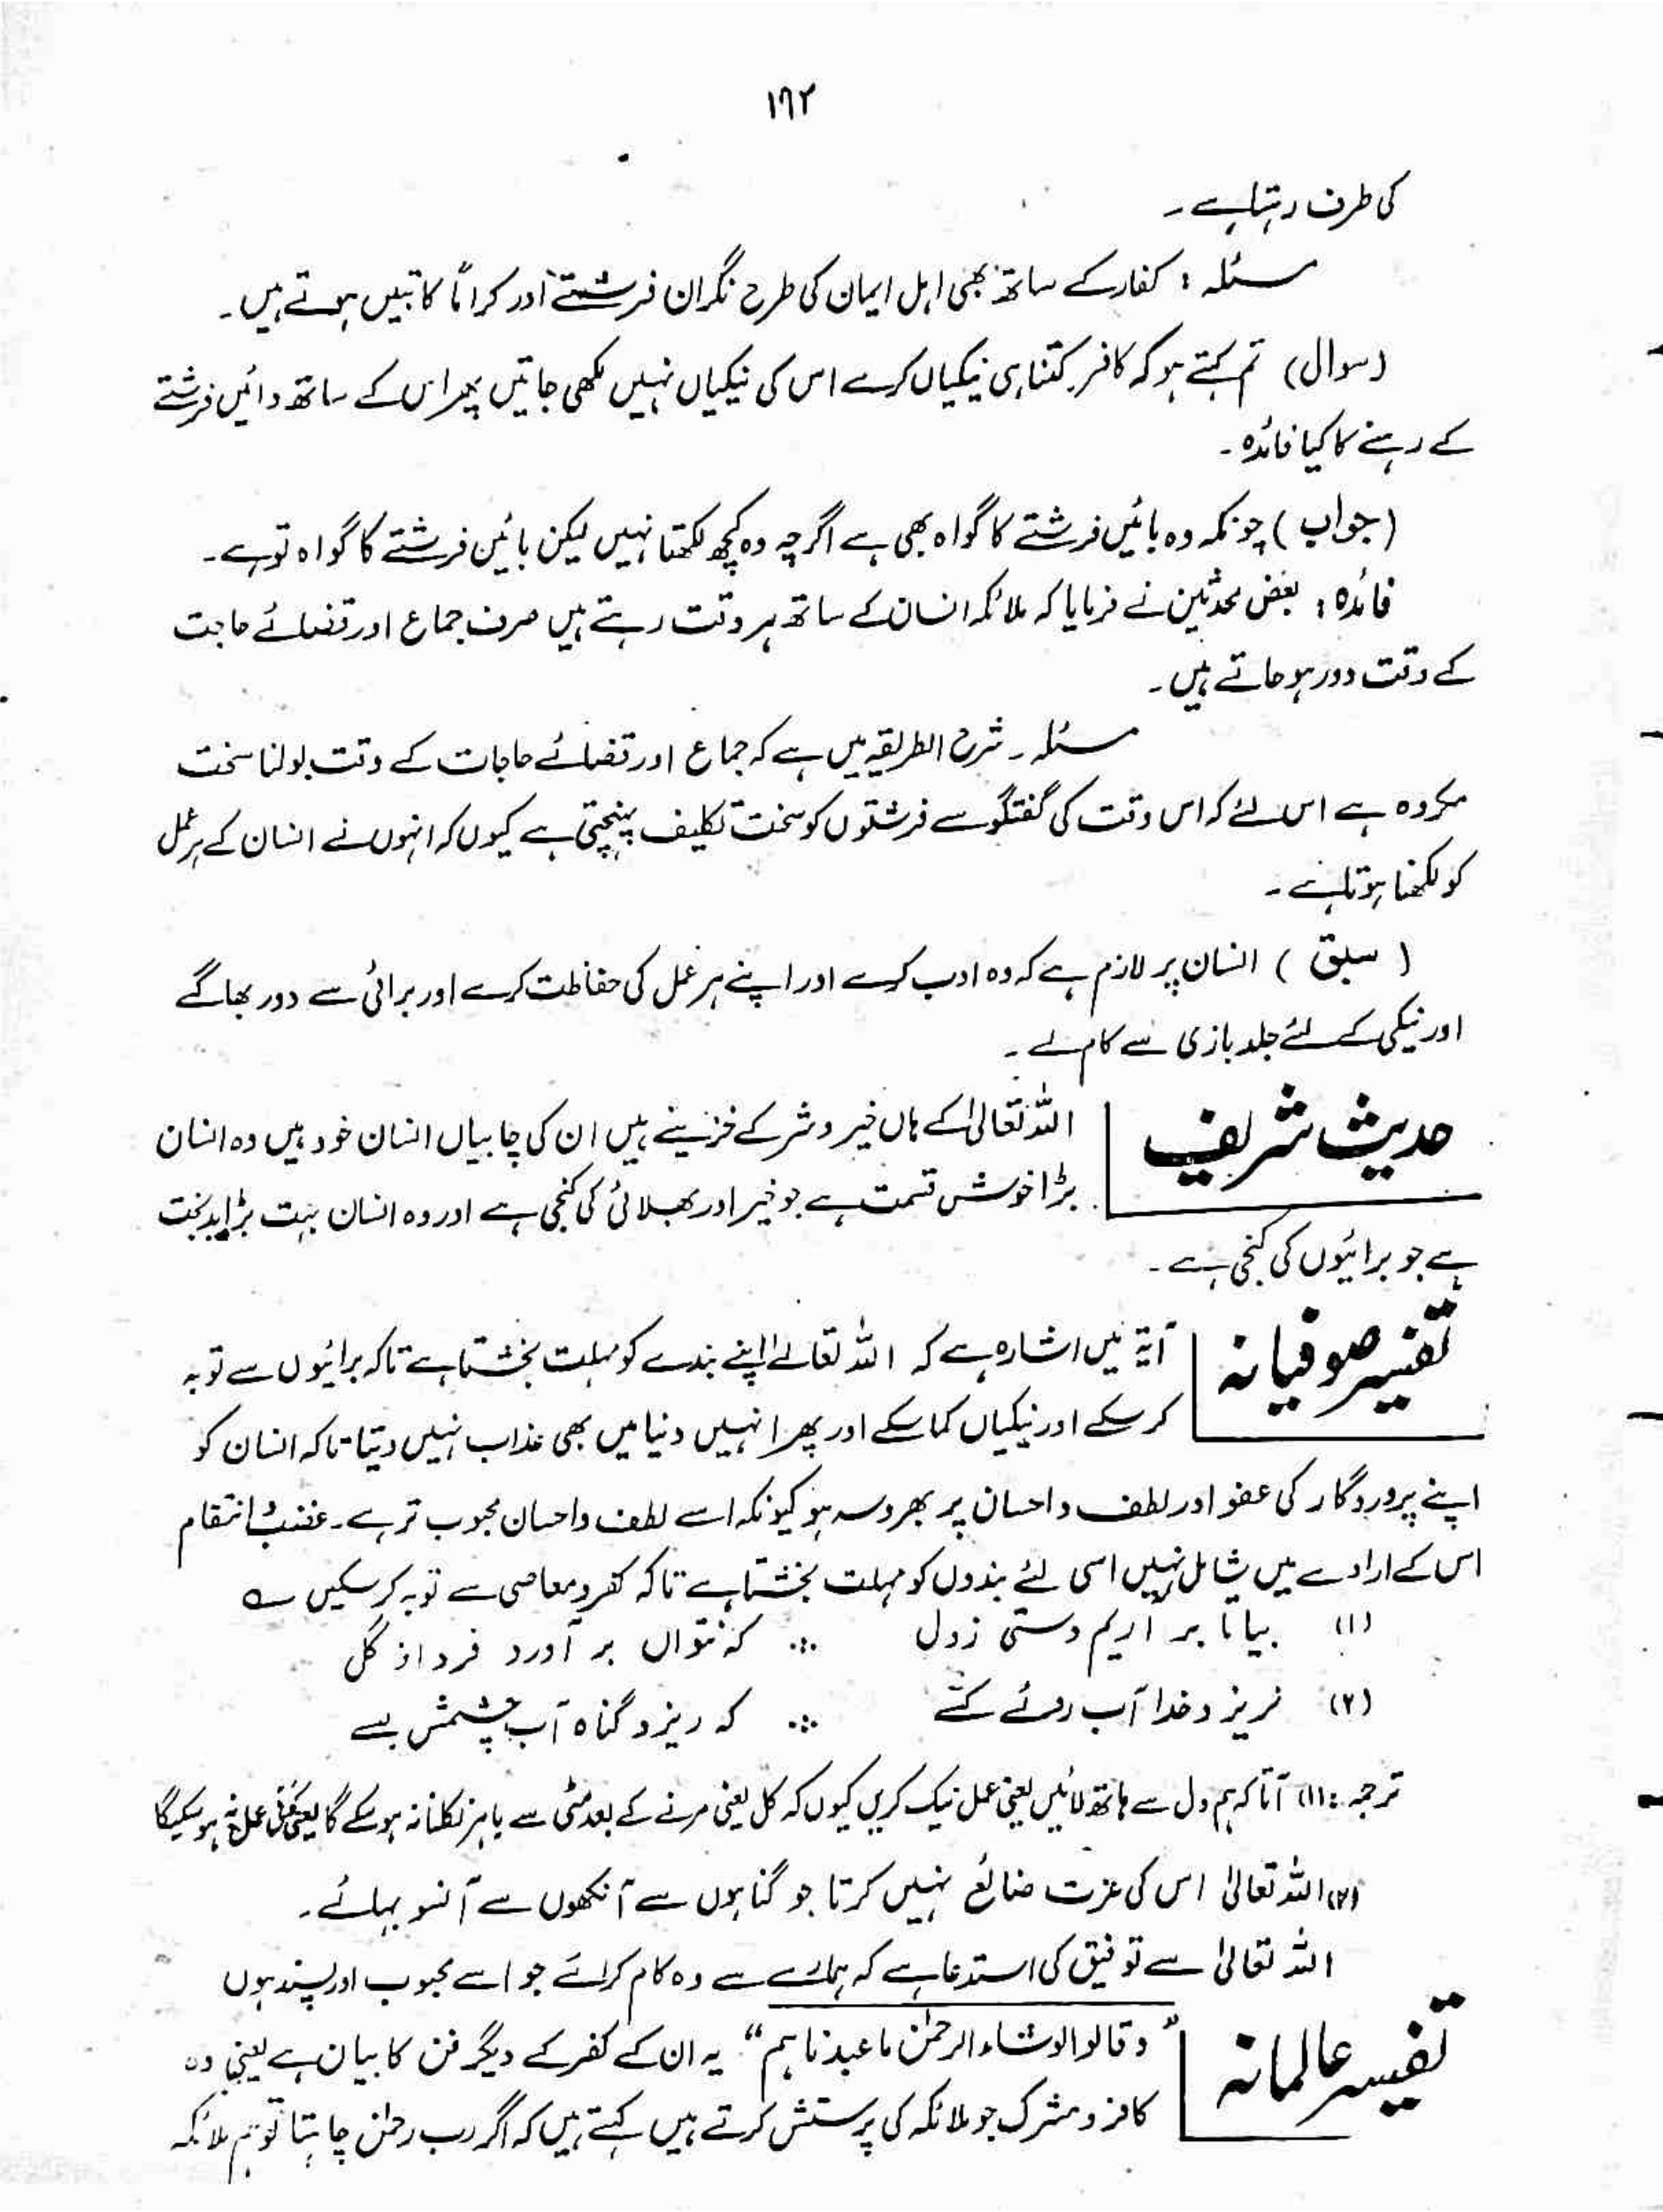 ۱۶۲
کی طرف رہتا ہے ۔
مسئلہ : کفار کے ساتھ بھی اہل ایمان کی طرح نگران فرشتے اور کراماً کاتبیں ہوتے ہیں ۔
(سوال) تم کہتے ہو کہ کافر کتنا ہی نیکیاں کرے اس کی نیکیاں نہیں لکھی جاتیں پھر اس کے ساتھ دائیں فرشتے
کے رہنے کا کیا فائدہ ۔
(جواب) چونکہ وہ بائیں فرشتے کا گواہ بھی ہے اگرچہ وہ کچھ لکھتا نہیں لیکن بائیں فرشتے کا گواہ تو ہے ۔
فائدہ : بعض محدثین نے فرمایا کہ ملائکہ انسان کے ساتھ ہر وقت رہتے ہیں صرف جماع اور قضائے حاجت
کے وقت دور ہو جاتے ہیں ۔
مسئلہ ۔ شرح الطریقہ میں ہے کہ جماع اور قضائے حاجات کے وقت بولنا سخت
مکروہ ہے اس لئے کہ اس وقت کی گفتگو سے فرشتوں کو سخت تکلیف پہنچتی ہے کیوں کہ انہوں نے انسان کے ہر عمل
کو لکھنا ہوتا ہے ۔
( سبق ) انسان پر لازم ہے کہ وہ ادب کرے اور اپنے ہر عمل کی حفاظت کرے اور برائی سے دور بھاگے
اور نیکی کے لئے جلد بازی سے کام لے ۔
حدیث شریف
اللہ تعالیٰ کے ہاں خیر و شر کے خزینے ہیں ان کی چابیاں انسان خود ہیں وہ انسان
بڑا خوش قسمت ہے جو خیر اور بھلائی کی کنجی ہے اور وہ انسان بہت بڑا بدبخت
ہے جو برائیوں کی کنجی ہے ۔
تفسیر صوفیانہ
آیۃ میں اشارہ ہے کہ اللہ تعالےٰ اپنے بندے کو مہلت بخشتا ہے تاکہ برائیوں سے توبہ
کر سکے اور نیکیاں کما سکے اور پھر انہیں دنیا میں بھی عذاب نہیں دیتا تاکہ انسان کو
اپنے پروردگار کی عفو اور لطف و احسان پر بھروسہ ہو کیونکہ اسے لطف و احسان محبوب تر ہے ۔ غضب و انتقام
اس کے ارادے میں شامل نہیں اسی لئے بندوں کو مہلت بخشتا ہے تاکہ کفر و معاصی سے توبہ کر سکیں ؎
(۱) بیا تا بر آریم دستی زدل ∴ کہ نتواں بر آورد فردا ز گل
(۲) نریزد خدا آب روئے کسے ∴ کہ ریزد گناہ آب چشمش بسے
ترجمہ : (۱) آ تاکہ ہم دل سے ہاتھ لائیں یعنی عمل نیک کریں کیوں کہ کل یعنی مرنے کے بعد مٹی سے باہر نکلنا نہ ہو سکے گا یعنی کوئی عمل نہ ہو سکیگا
(۲) اللہ تعالیٰ اس کی عزت ضائع نہیں کرتا جو گناہوں سے آنکھوں سے آنسو بہائے ۔
اللہ تعالیٰ سے توفیق کی استدعا ہے کہ ہمارے سے وہ کام کرائے جو اسے محبوب اور پسند ہوں
تفسیر عالمانہ
"وقالوا لوشاء الرحمٰن ما عبدناہم" یہ ان کے کفر کے دیگر فن کا بیان ہے یعنی وہ
کافر و مشرک جو ملائکہ کی پرستش کرتے ہیں کہتے ہیں کہ اگر رب رحمٰن چاہتا تو ہم ملائکہ